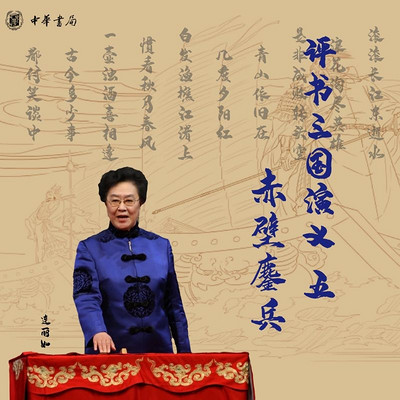 中華書局
滚滚长江东逝水
浪花淘尽英雄
是非成败转头空
青山依旧在
几度夕阳红
白发渔樵江渚上
惯看秋月春风
一壶浊酒喜相逢
古今多少事
都付笑谈中
评书三国演义 五
赤壁鏖兵
连丽如